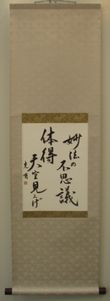 妙法の
不思議
体得
天空見上げ